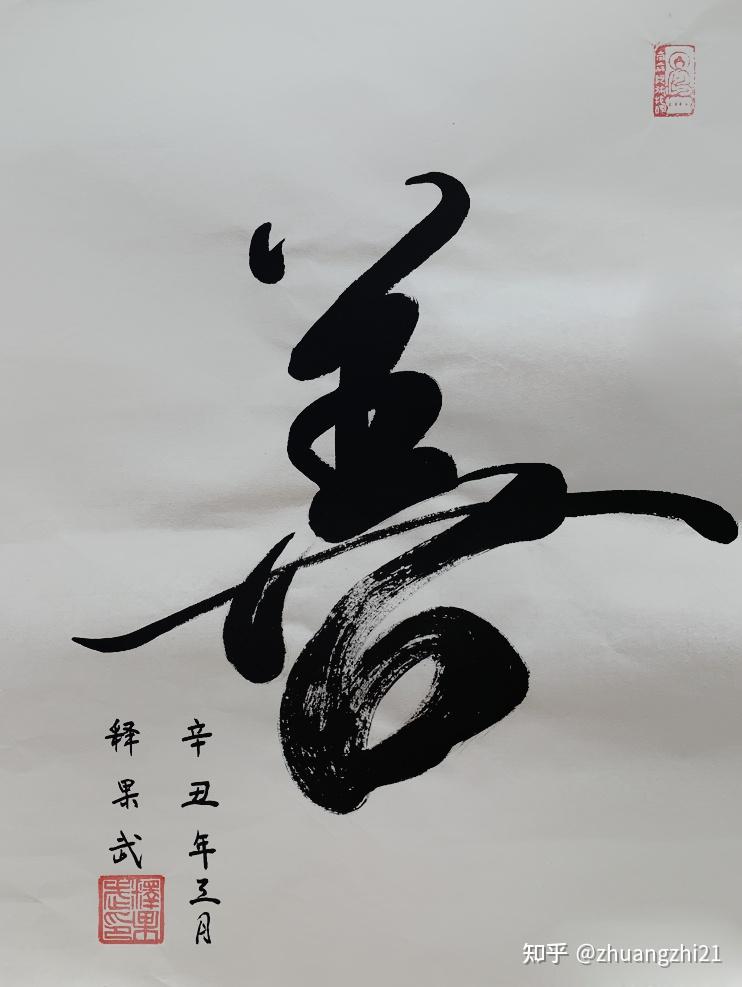 善
辛丑年三月
释果武
釋果武印
知乎 @zhuangzhi21